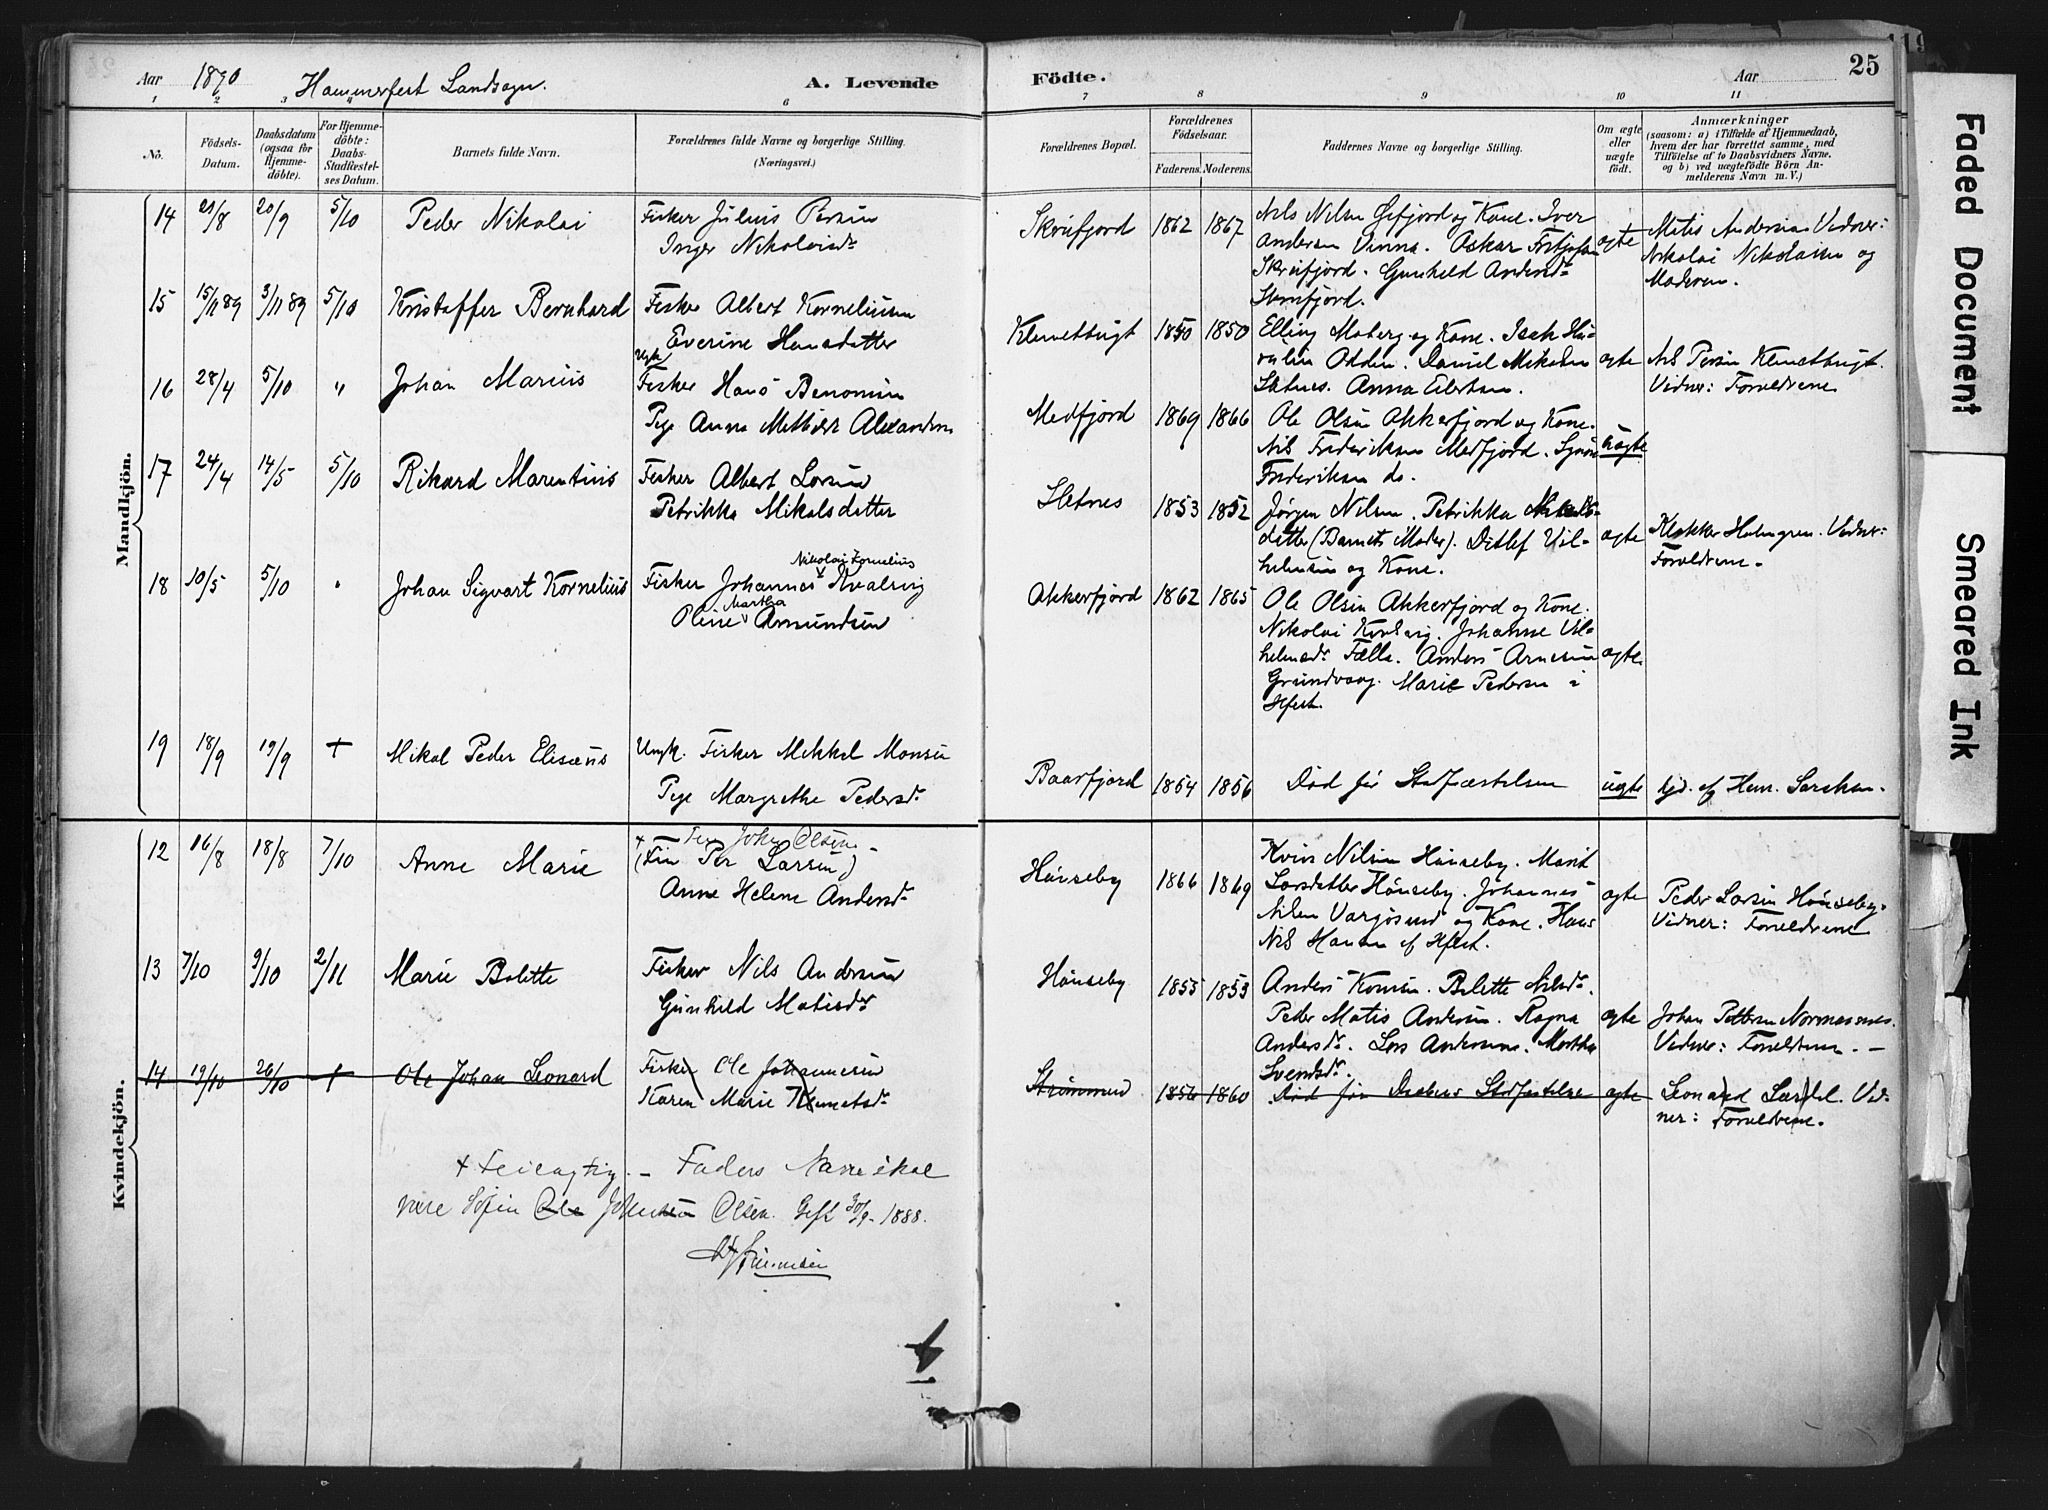 Aar 1890 Hammerfest Landsogn. A. Levende Födte. Aar 25
1 2 3 4 6 7 8 9 10 11
No. Födsels-Datum. Daabsdatum (ogsaa for Hjemme-döbte). For Hjemme-döbte: Daabs-Stadfæstel-ses Datum. Barnets fulde Navn. Forældrenes fulde Navne og borgerlige Stilling. (Næringsvei.) Forældrenes Bopæl. Forældrenes Födselsaar. Faderens. Moderens. Faddernes Navne og borgerlige Stilling. Om ægte eller uægte födt. Anmærkninger
(saasom: a) i Tilfælde af Hjemmedaab, hvem der har forrettet samme, med Tilföielse af to Daabsvidners Navne. og b) ved uægtefödte Börn An-melderens Navn m. V.)
Mandkjön.
14 21/8 20/9 5/10 Peder Nikolai Fisker Julius Persen
Inger Nikolaisdr
Skrufjord 1862 1867 Nils Nilsen Øfjord og Kone. Iver
Andersen Vinna. Oskar
Skrufjord. Gunhild Andersdr
ægte Matis Andersen Vidner:
Nikolai Nikolaisen og
Moderen.
15 15/11 89 3/11 89 5/10 Kristoffer Bernhard Fisker Albert Kornelius
Everine Hansdatter
Klemetbugt 1850 1850 Elling Moberg og Kone. Isak
Odden. Daniel Mikalsen
Sletnes. Anna
ægte Nils Persen Klemetbugt.
Vidner: Forældrene
16 28/4 5/10 " Johan Marius Ungk. Fisker Hans Benonisen
Pige Anna Mathisdr Alexandersen
Medfjord 1869 1866 Ole Olsen Akkerfjord og Kone.
Nils Frederiksen Medfjord.
Frederiksen do.
uægte
17 24/4 14/5 5/10 Rikard Marentius Fisker Albert Larsen
Petrikka Mikalsdatter
Sletnes 1853 1852 Jørgen Nilsen. Petrikka Mikals-
datter (Barnets Moder). Ditlef Vil-
helmsen og Kone.
ægte Klokker Holmgren. Vidner:
Forældrene.
18 10/5 5/10 " Johan Sigvart Kornelius Fisker Johannes Nikolai Kornelius Kvalvig
Oline Martha Amundsen
Akkerfjord 1862 1865 Ole Olsen Akkerfjord og Kone.
Nikolai Kvalvig. Johanne Vil-
helmsdr Fælle. Anders Arnesen
Grundvaag. Marie Pedersen i
Hfest.
ægte
19 18/9 19/9 + Mikal Peder Elisæus Ungk. Fisker Mikkel Monsen
Pige Margrethe Pedersdr
Baarfjord 1854 1856 Død før Stadfæstelsen uægte
Kvindekjön.
12 16/8 18/8 7/10 Anne Marie + Fin Johan Olsen
(Fin Per Larsen)
Anne Helene Andersdr
Hønseby 1866 1869 Nilsen Hønseby. Marit
Larsdatter Hønseby. Johannes
Nilsen Vargøsund og Kone. Hans
Nils Hansen af Hfest.
ægte Peder Larsen Hønseby.
Vidner: Forældrene
13 7/10 9/10 2/11 Marie Bolette Fisker Nils Andersen
Gunhild Matisdr
Hønseby 1853 1853 Anders Bolette Nilsdr.
Peder Matis Andersen. Ragna
Andersdr. Lars Andersen. Martha
Svendsdr.
ægte Johan Pettersen
Vidner: Forældrene.
14 19/10 26/10 + Ole Johan Leonard Fisker Ole Johannesen
Karen Marie Klemetsdr
Strømmen 1856 1860 Død før Daabens Stadfæstelse ægte Leonard Vid-
ner: Forældrene.
+ Feilagtig. – Faders Navn skal
være Ole Olsen. Gift 30/9 – 1888.
119
Faded Document
Smeared Ink